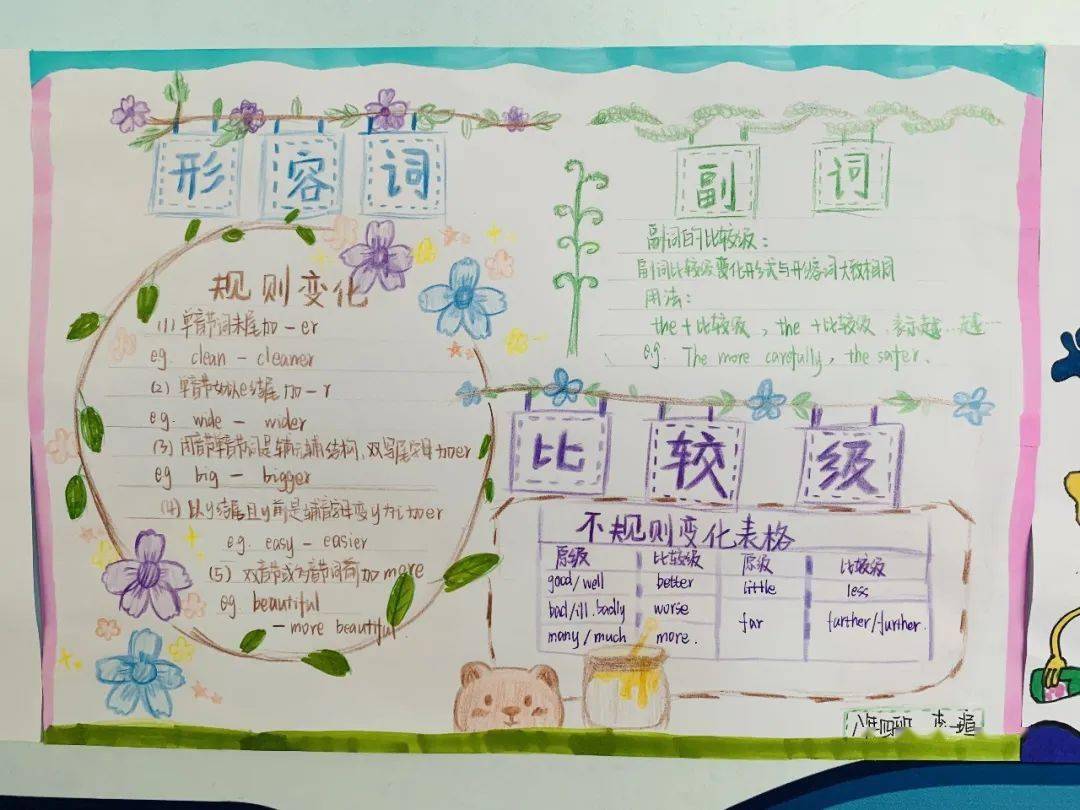 形容词
规则变化
(1) 单音节词末尾加-er
eg. clean - cleaner
(2) 单音节如以e结尾加-r
eg. wide - wider
(3) 闭音节单音节词是辅元辅结构,双写尾字母加er
eg big - bigger
(4) 以y结尾且y前是辅音字母变y为i加er
eg. easy - easier
(5) 双音节或多音节词前加more
eg. beautiful
- more beautiful.
副词
副词的比较级:
副词比较级变化形式与形容词大致相同
用法:
the + 比较级, the + 比较级 表示越…越…
eg. The more carefully, the safer.
比较级
不规则变化表格
原级 比较级 原级 比较级
good/well better little less
bad/ill.badly worse far farther/further.
many/much more.
八年四班